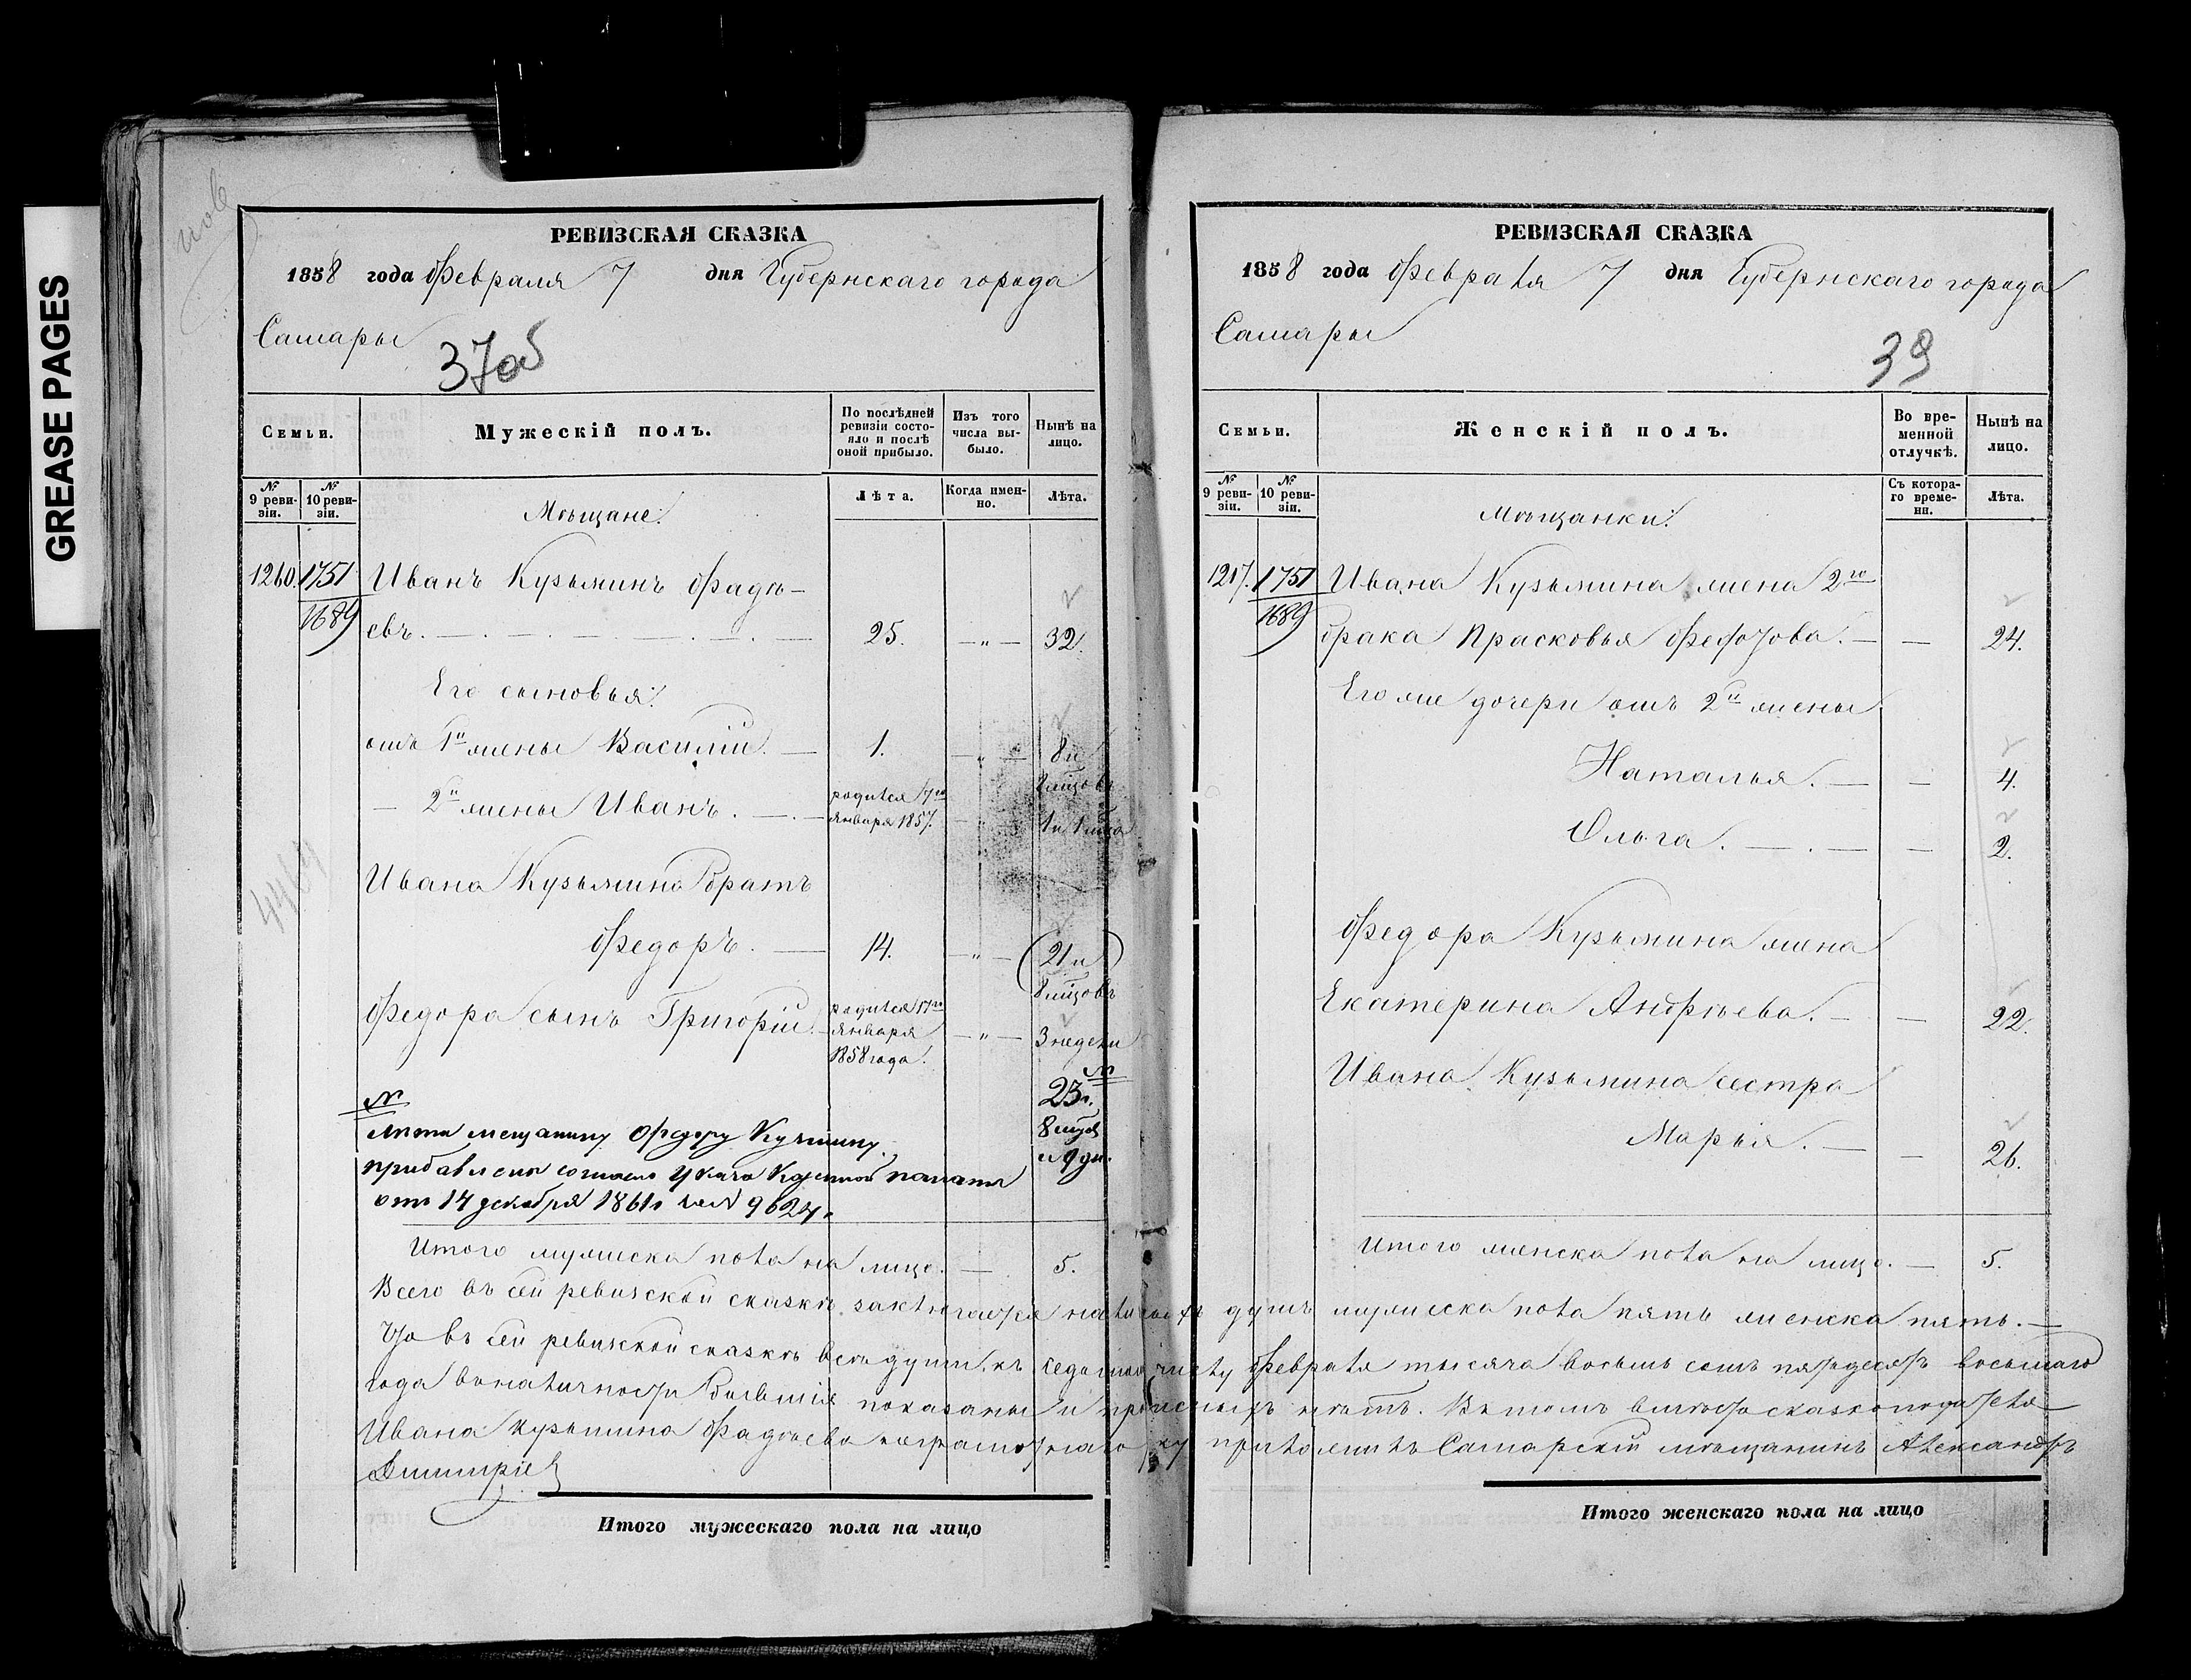 GREASE PAGES
РЕВИЗСКАЯ СКАЗКА
1858 года Февраля 7 дня Губернскаго города
Самары
37об
Семьи.
Мужескій полъ.
По послѣдней ревизіи состояло и послѣ оной прибыло.
Изъ того числа выбыло.
Нынѣ на лицо.
№ 9 ревизіи.
№ 10 ревизіи.
Лѣта.
Когда именно.
Лѣта.
Мѣщане:
1260. 1751 Иванъ Кузьминъ Фадѣ-
1689 евъ. 25. — " — 32.
Его сыновья:
отъ 1й жены Василій. — 1. — " — 8 и
2 мѣсяцовъ
— 2й жены Иванъ. — родился 7го
января 1857. 1 и 1 мѣсяца
Ивана Кузьмина братъ
Федоръ. — 14. — " — (21 и)
8 мѣсяцовъ
Федора сынъ Григорій. родился 17го
января — " — 3 недели
1858 года.
№
23 г.
№
лѣта мещанину Федору Кузмину 8 мѣсяц
прибавлены согласно Указа Казенной палаты и 9 дн.
отъ 14 декабря 1861 г за № 9624.
Итого мужеска пола на лицо. — 5.
РЕВИЗСКАЯ СКАЗКА
1858 года Февраля 7 дня Губернскаго города
Самары
39
Семьи.
Женскій полъ.
Во временной отлучкѣ.
Нынѣ на лицо.
№ 9 ревизіи.
№ 10 ревизіи.
Съ котораго времени.
Лѣта.
Мѣщанки:
1217. 1751 Ивана Кузьмина жена 2го
1689 брака Прасковья Федотова. — — 24.
Его же дочери отъ 2й жены
Наталья. — — 4.
Ольга. — — 2.
Федора Кузьмина жена
Екатерина Андрѣева. — — 22.
Ивана Кузьмина сестра
Марья. — — 26.
Итого женска пола на лицо. — 5.
Всего въ сей ревизской сказкѣ заключается наличныхъ душъ мужеска пола пять женска пять. —
Что въ сей ревизской сказкѣ всѣ души, къ седьмому числу Февраля тысяча восемь сотъ пятьдесятъ восьмаго
года въ наличности бывшія показаны и прописныхъ нѣтъ. Въ томъ вмѣсто сказкоподателя
Ивана Кузьмина Фадѣева неграмотнаго руку приложилъ Самарскій мѣщанинъ Александръ
Дмитріев
Итого мужескаго пола на лицо
Итого женскаго пола на лицо